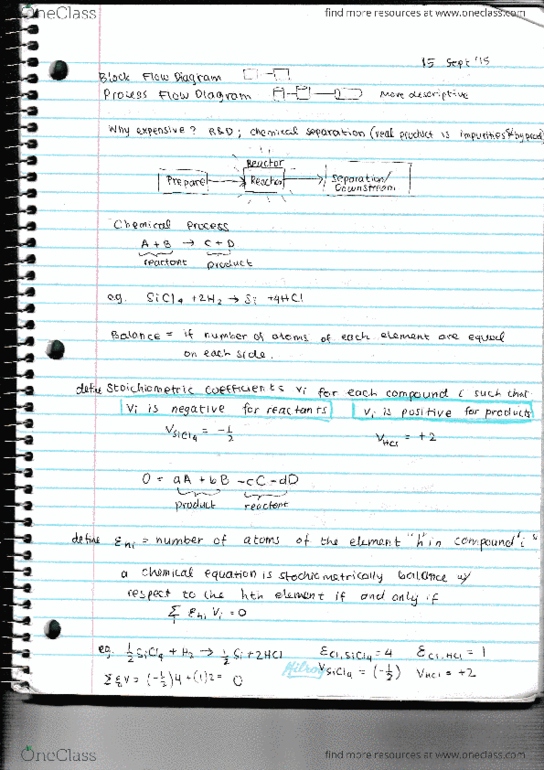 OneClass
find more resources at www.oneclass.com
15 Sept '15
Block Flow Diagram
Process Flow Diagram More descriptive
Why expensive? R&D; chemical separation (real product is impurities & byprod)
Reactor
Prepare → Reactor → Separation/
Downstream
Chemical Process
A + B → C + D
reactant product
eg. SiCl4 + 2H2 → Si + 4HCl
Balance = if number of atoms of each element are equal
on each side.
define Stoichiometric coefficients Vi for each compound i such that
Vi is negative for reactants Vi is positive for products
VSiCl4 = -1/2 VHCl = +2
0 = aA + bB - cC - dD
product reactant
define εhi = number of atoms of the element "h" in compound "i"
a chemical equation is stochimetrically balance w/
respect to the hth element if and only if
Σi εhi Vi = 0
eg. 1/2 SiCl4 + H2 → 1/2 Si + 2HCl εCl,SiCl4 = 4 εCl,HCl = 1
Σ εV = (-1/2)4 + (1)2 = 0 VSiCl4 = (-1/2) VHCl = +2
Hilroy
OneClass
find more resources at www.oneclass.com